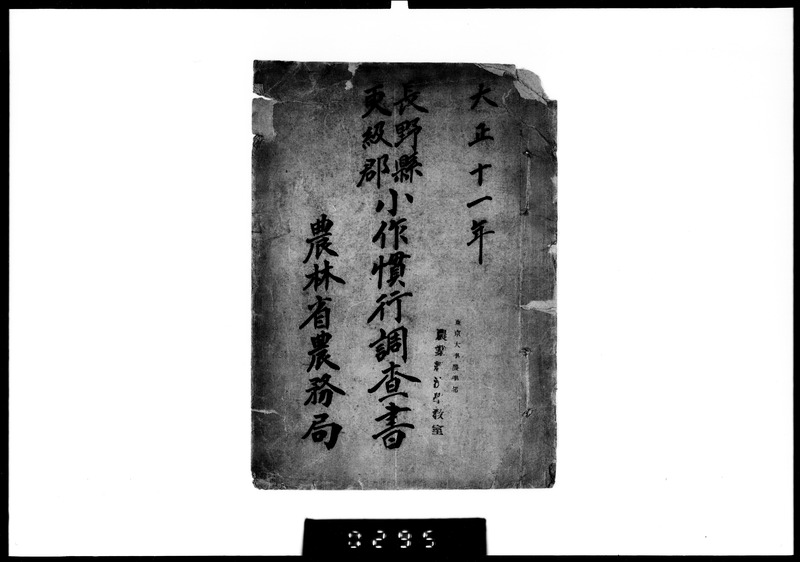 大正十一年
長野縣
更級郡
小作慣行調査書
農林省農務局
東京大学農学部
教室
0295